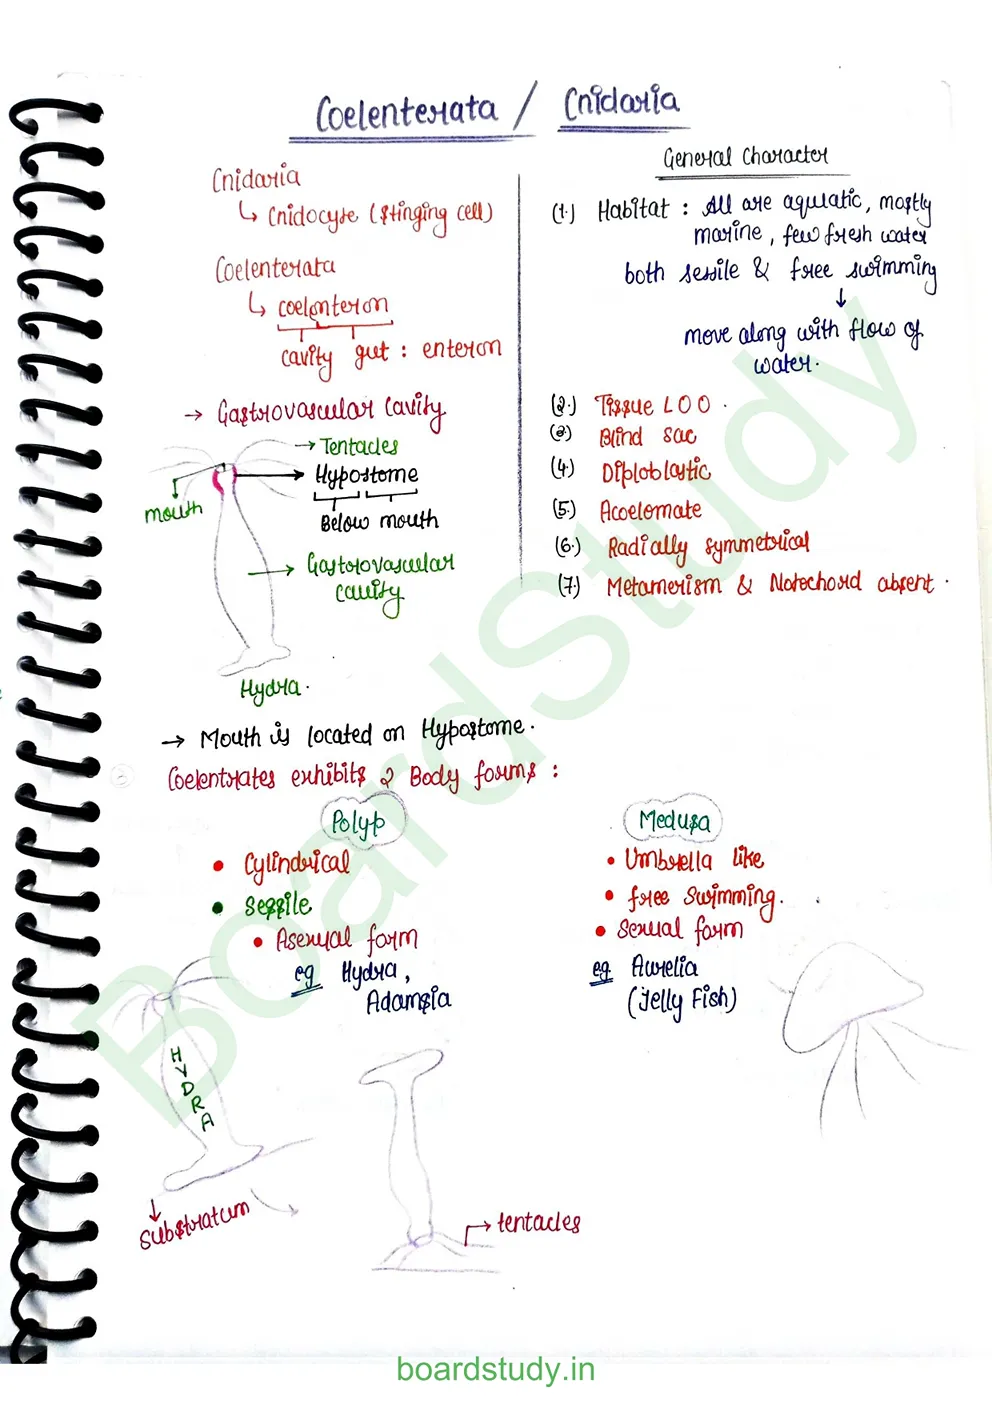 Coelenterata / Cnidaria
Cnidaria
↳ Cnidocyte (stinging cell)
Coelenterata
↳ coelenteron
cavity gut : enteron
→ Gastrovascular Cavity
→ Tentacles
Hypostome
mouth
Below mouth
→ Gastrovascular
cavity
Hydra.
General Character
(1.) Habitat : All are aquatic, mostly
marine, few fresh water
both sessile & free swimming
↓
move along with flow of
water.
(2.) Tissue LOO.
(3) Blind sac
(4.) Diploblastic
(5.) Acoelomate
(6.) Radially symmetrical
(7.) Metamerism & Notochord absent.
→ Mouth is located on Hypostome.
Coelentrates exhibits 2 Body forms :
Polyp
• Cylindrical
• Sessile
• Asexual form
eg Hydra,
Adamsia
Medusa
• Umbrella like
• free swimming.
• Sexual form
eg Aurelia
(Jelly Fish)
HYDRA
substratum
tentacles
BoardStudy
boardstudy.in